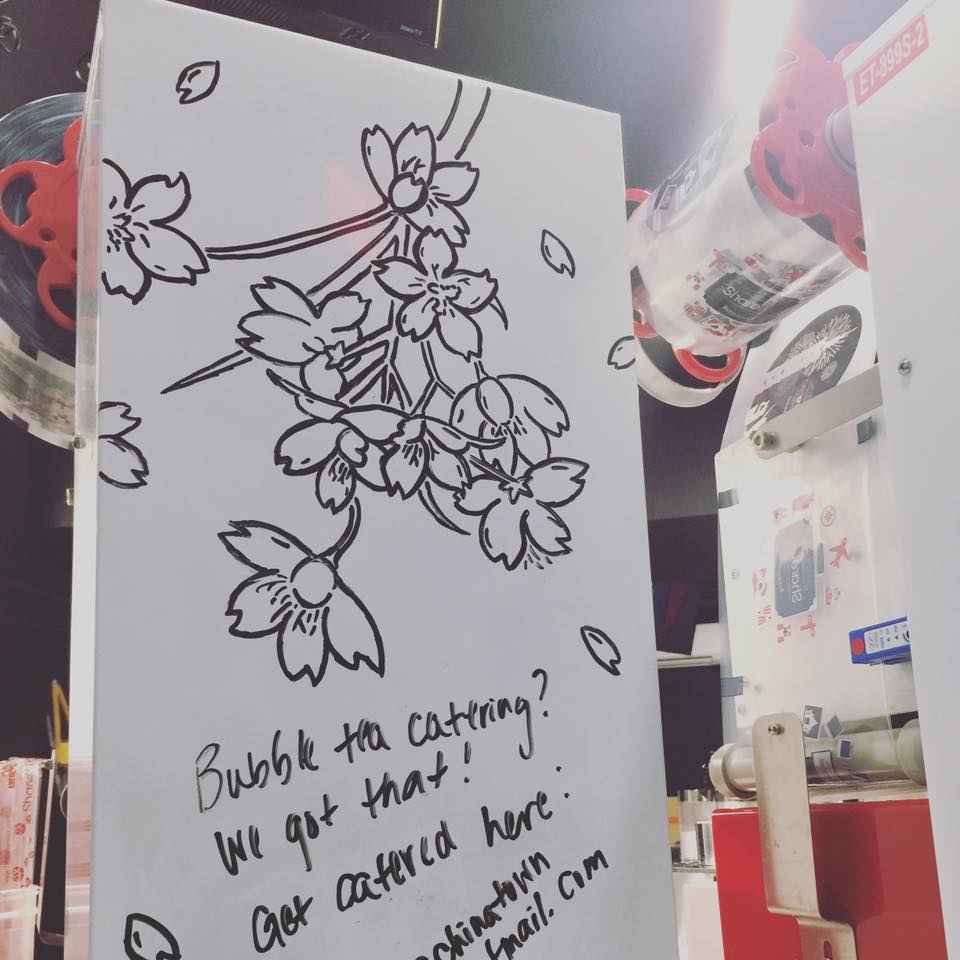 ET-899S-2
Share
Share
Bubble tea catering?
We got that!
Get catered here:
chinatown
mail.com
Share